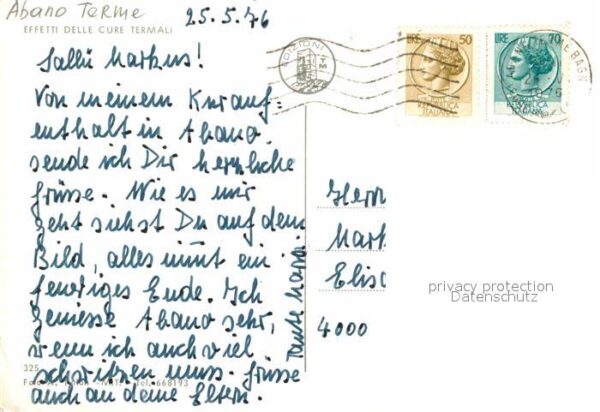 Abano Terme
25.5.76
EFFETTI DELLE CURE TERMALI
Salü Markus!
Von meinem Kurauf=
enthalt in Abano
sende ich Dir herzliche
Grüsse. Wie es mir
geht siehst Du auf dem
Bild, alles nimt ein
feuriges Ende. Ich
geniesse Abano sehr,
wenn ich auch viel
schwitzen muss. Grüsse
auch an deine Eltern.
Tante
325
Tel. 668193
EDIZIONI
LIRE 50
REPUBBLICA
ITALIANA
LIRE 70
REPUBBLICA
ITALIANA
Herrn
Mark
Elisa
4000
privacy protection
Datenschutz